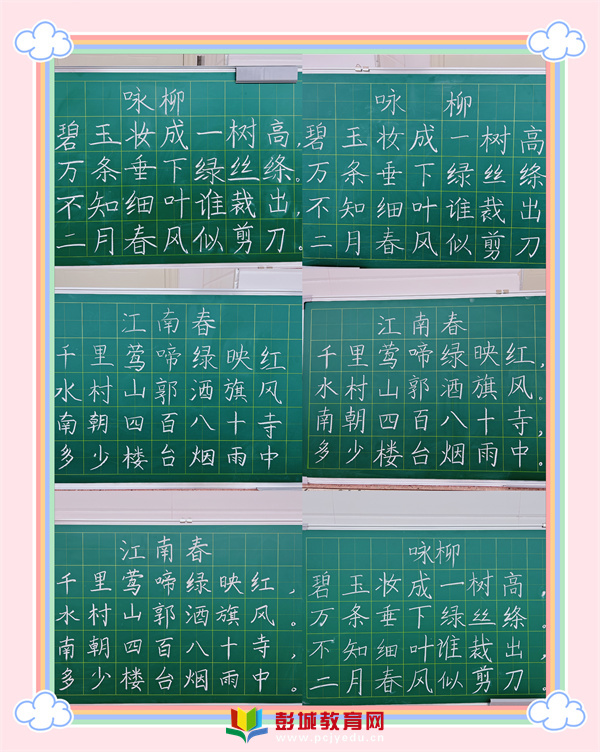 咏柳
碧玉妆成一树高，
万条垂下绿丝绦。
不知细叶谁裁出，
二月春风似剪刀。
咏柳
碧玉妆成一树高
万条垂下绿丝绦
不知细叶谁裁出
二月春风似剪刀
江南春
千里莺啼绿映红
水村山郭酒旗风
南朝四百八十寺
多少楼台烟雨中
江南春
千里莺啼绿映红，
水村山郭酒旗风。
南朝四百八十寺，
多少楼台烟雨中。
江南春
千里莺啼绿映红，
水村山郭酒旗风。
南朝四百八十寺，
多少楼台烟雨中。
咏柳
碧玉妆成一树高，
万条垂下绿丝绦。
不知细叶谁裁出，
二月春风似剪刀。
彭城教育网
www.pcjyedu.cn